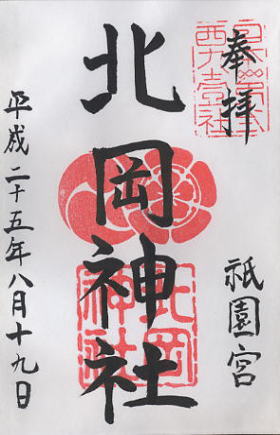 奉拝
祇園宮
北岡神社
平成二十五年八月十九日
北岡
神社